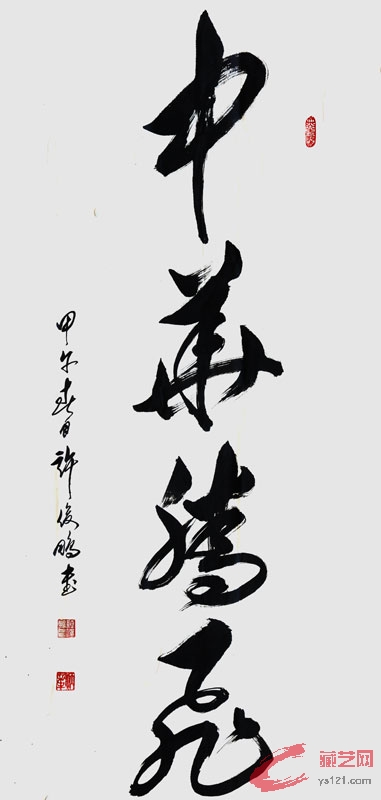 中華騰飛
甲午春日許俊鵬書
藏艺网
ys121.com